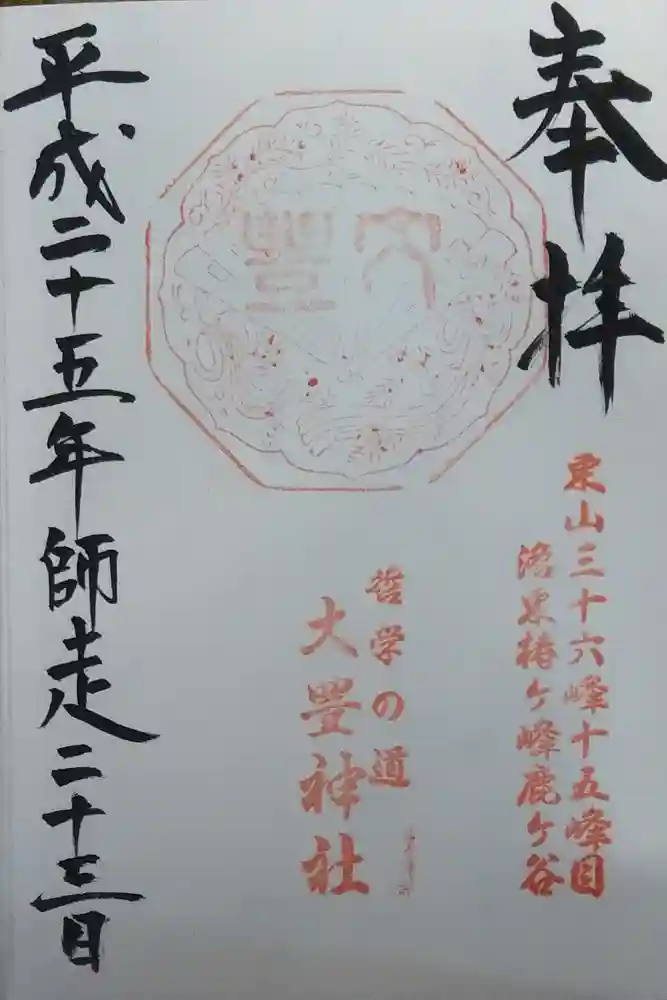 奉拝
東山三十六峰十五峰目
椿ケ峰鹿ケ谷
大豊
哲学の道
大豊神社
平成二十五年師走二十三日